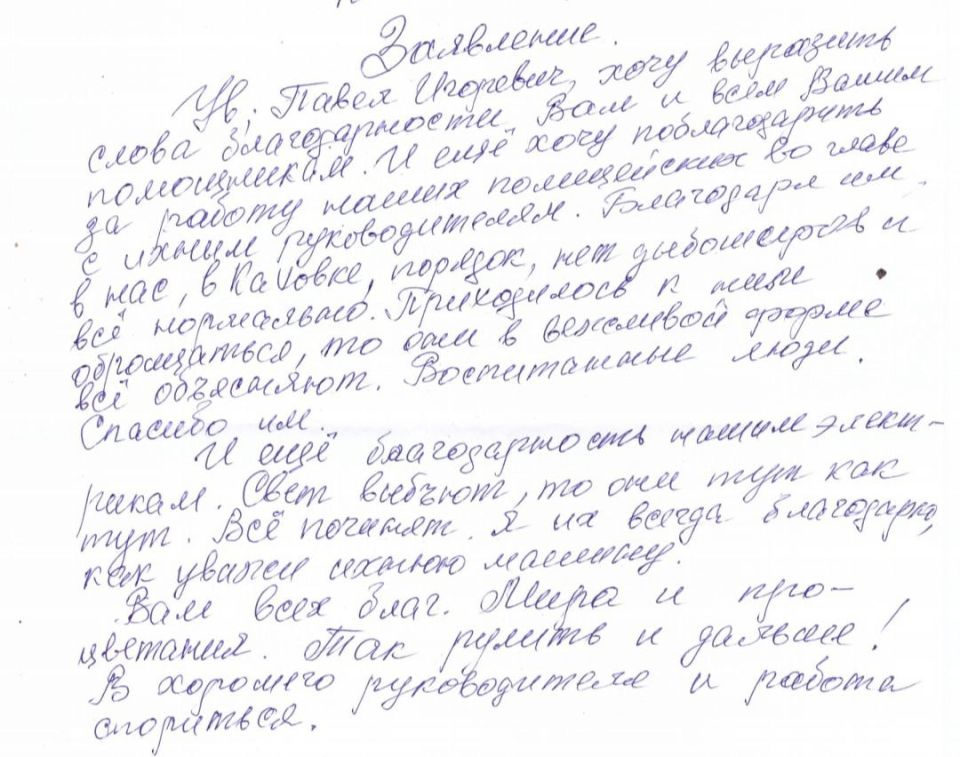 Заявление.
Ув. Павел Игоревич, хочу выразить
слова благодарности Вам и всем Вашим
помощникам. И ещё хочу поблагодарить
за работу наших полицейских во главе
с ихним руководителям. Благодаря им
в нас, в Каховке, порядок, нет дебоширов и
всё нормально. Приходилось к ним
обращаться, то они в вежливой форме
всё объясняют. Воспитанные люди.
Спасибо им.
И ещё благодарность нашим элект-
рикам. Свет выбъют, то они тут как
тут. Всё починят. Я их всегда благодарю,
как увижу ихнюю машину.
Вам всех благ. Мира и про-
цветания. Так рулить и дальше!
В хорошего руководителя и работа
спориться.